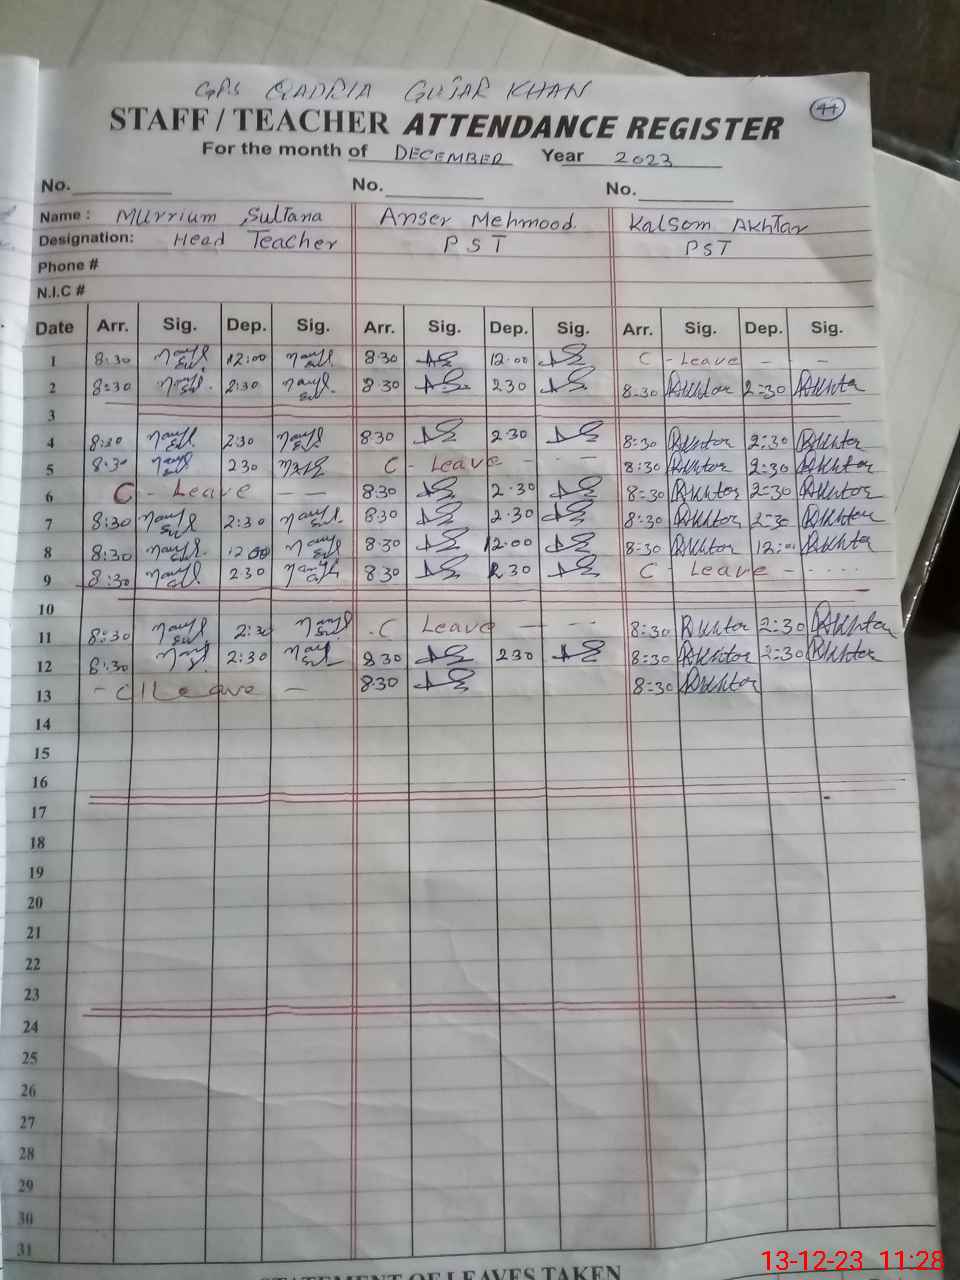 GPS QADRIA GUJAR KHAN
44
STAFF / TEACHER ATTENDANCE REGISTER
For the month of DECEMBER Year 2023
No. No. No.
Name : Murrium Sultana Anser Mehmood Kalsom Akhtar
Designation: Head Teacher PST PST
Phone #
N.I.C #
Date Arr. Sig. Dep. Sig. Arr. Sig. Dep. Sig. Arr. Sig. Dep. Sig.
1 8:30 12:00 8:30 12:00 C - Leave - - -
2 8:30 2:30 8:30 230 8:30 Akhtar 2:30 Akhtar
3
4 8:30 2:30 8:30 2:30 8:30 Akhtar 2:30 Akhtar
5 8:30 230 C - Leave - - - 8:30 Akhtar 2:30 Akhtar
6 C - Leave - - 8:30 2:30 8:30 Akhtar 2:30 Akhtar
7 8:30 2:30 8:30 2:30 8:30 Akhtar 2:30 Akhtar
8 8:30 12:00 8:30 12:00 8:30 Akhtar 12:00 Akhtar
9 8:30 230 830 230 C - Leave - - - -
10
11 8:30 2:30 C Leave - - - 8:30 Akhtar 2:30 Akhtar
12 8:30 2:30 830 230 8:30 Akhtar 2:30 Akhtar
13 - C Leave - 8:30 8:30 Akhtar
14
15
16
17
18
19
20
21
22
23
24
25
26
27
28
29
30
31
STATEMENT OF LEAVES TAKEN
13-12-23 11:28